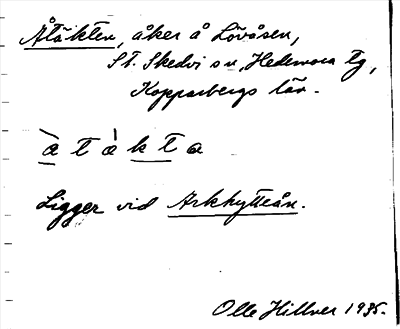 Åtäkten, åker å Lövåsen,
St. Skedvi sn, Hedemora tg,
Kopparbergs län.
à t ὰ k t a
Ligger vid Arkhytteån.
Olle Hillver 1935.